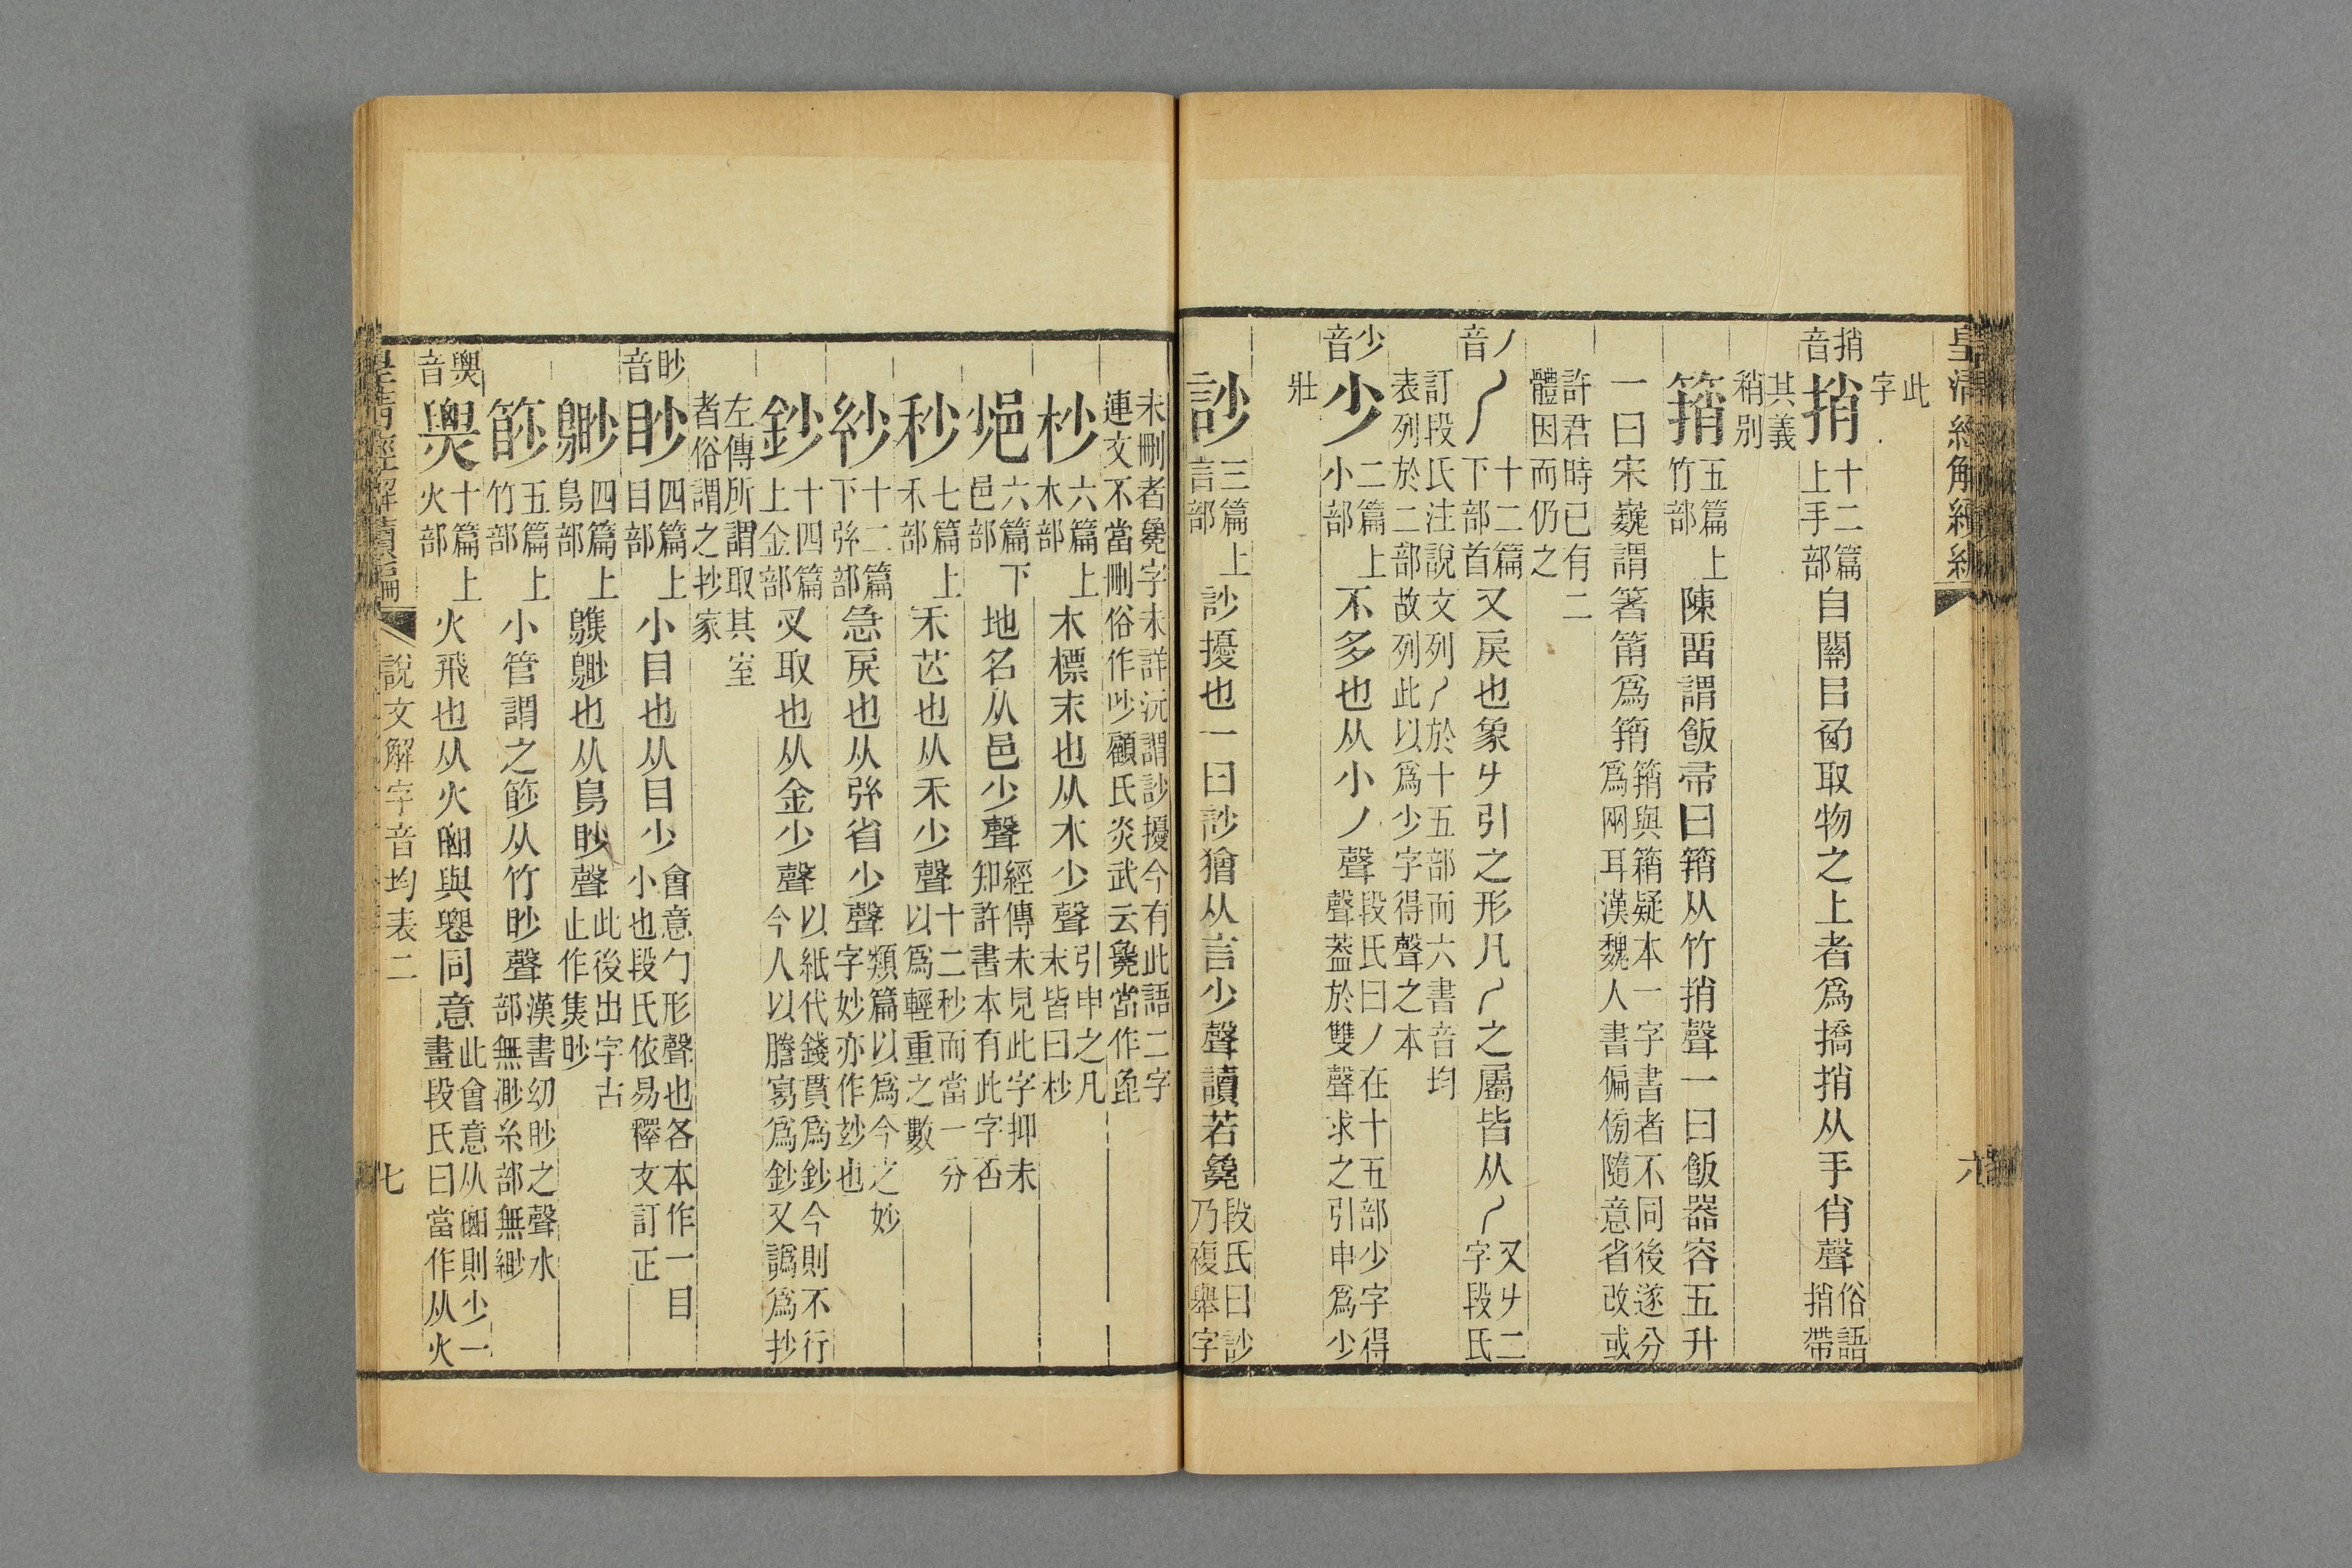 皇清經解續編
六
此
字
捎音
捎十二篇上手部自關目卥取物之上者爲撟捎从手肖聲俗語捎帶
其義
稍別
䈰五篇上竹部陳畱謂飯帚曰䈰从竹捎聲一曰飯器容五升
一曰宋巍謂箸筩爲䈰䈰與箱疑本一字書者不同後遂分爲兩耳漢魏人書偏傍隨意省改或
許君時已有二
體因而仍之
丿音
十二篇下部首又戻也象引之形凡之屬皆从又二字段氏
訂段氏注說文列於十五部而六書音均
表列於二部故列此以爲少字得聲之本
少音
少二篇上小部不多也从小丿聲段氏曰丿在十五部少字得聲葢於雙聲求之引申爲少
壯
訬三篇上言部訬擾也一曰訬獪从言少聲讀若毚段氏曰訬乃複舉字
未刪者毚字未詳沅謂訬擾今有此語二字
連文不當刪俗作吵顧氏炎武云毚當作㲋
杪六篇上木部木標末也从木少聲引申之凡末皆曰杪
六篇下邑部地名从邑少聲經傳未見此字抑未知許書本有此字否
秒七篇上禾部禾芒也从禾少聲十二秒而當一分以爲輕重之數
紗十二篇下弦部急戻也从弦省少聲類篇以爲今之妙字妙亦作玅也
鈔十四篇上金部叉取也从金少聲以紙代錢貫爲鈔今則不行今人以謄寫爲鈔又譌爲抄
左傳所謂取其室
者俗謂之抄家
眇音
眇四篇上目部小目也从目少會意勹形聲也各本作一目小也段氏依易釋文訂正
四篇上鳥部鷦也从鳥眇聲此後出字古止作焦眇
五篇上竹部小管謂之从竹眇聲漢書幼眇之聲水部無渺糸部無緲
㷠音
十篇上火部火飛也从火𦥑與䙴同意此會意从𦥑則少一畫段氏曰當作从火
皇清經解續編
說文解字音均表二
七